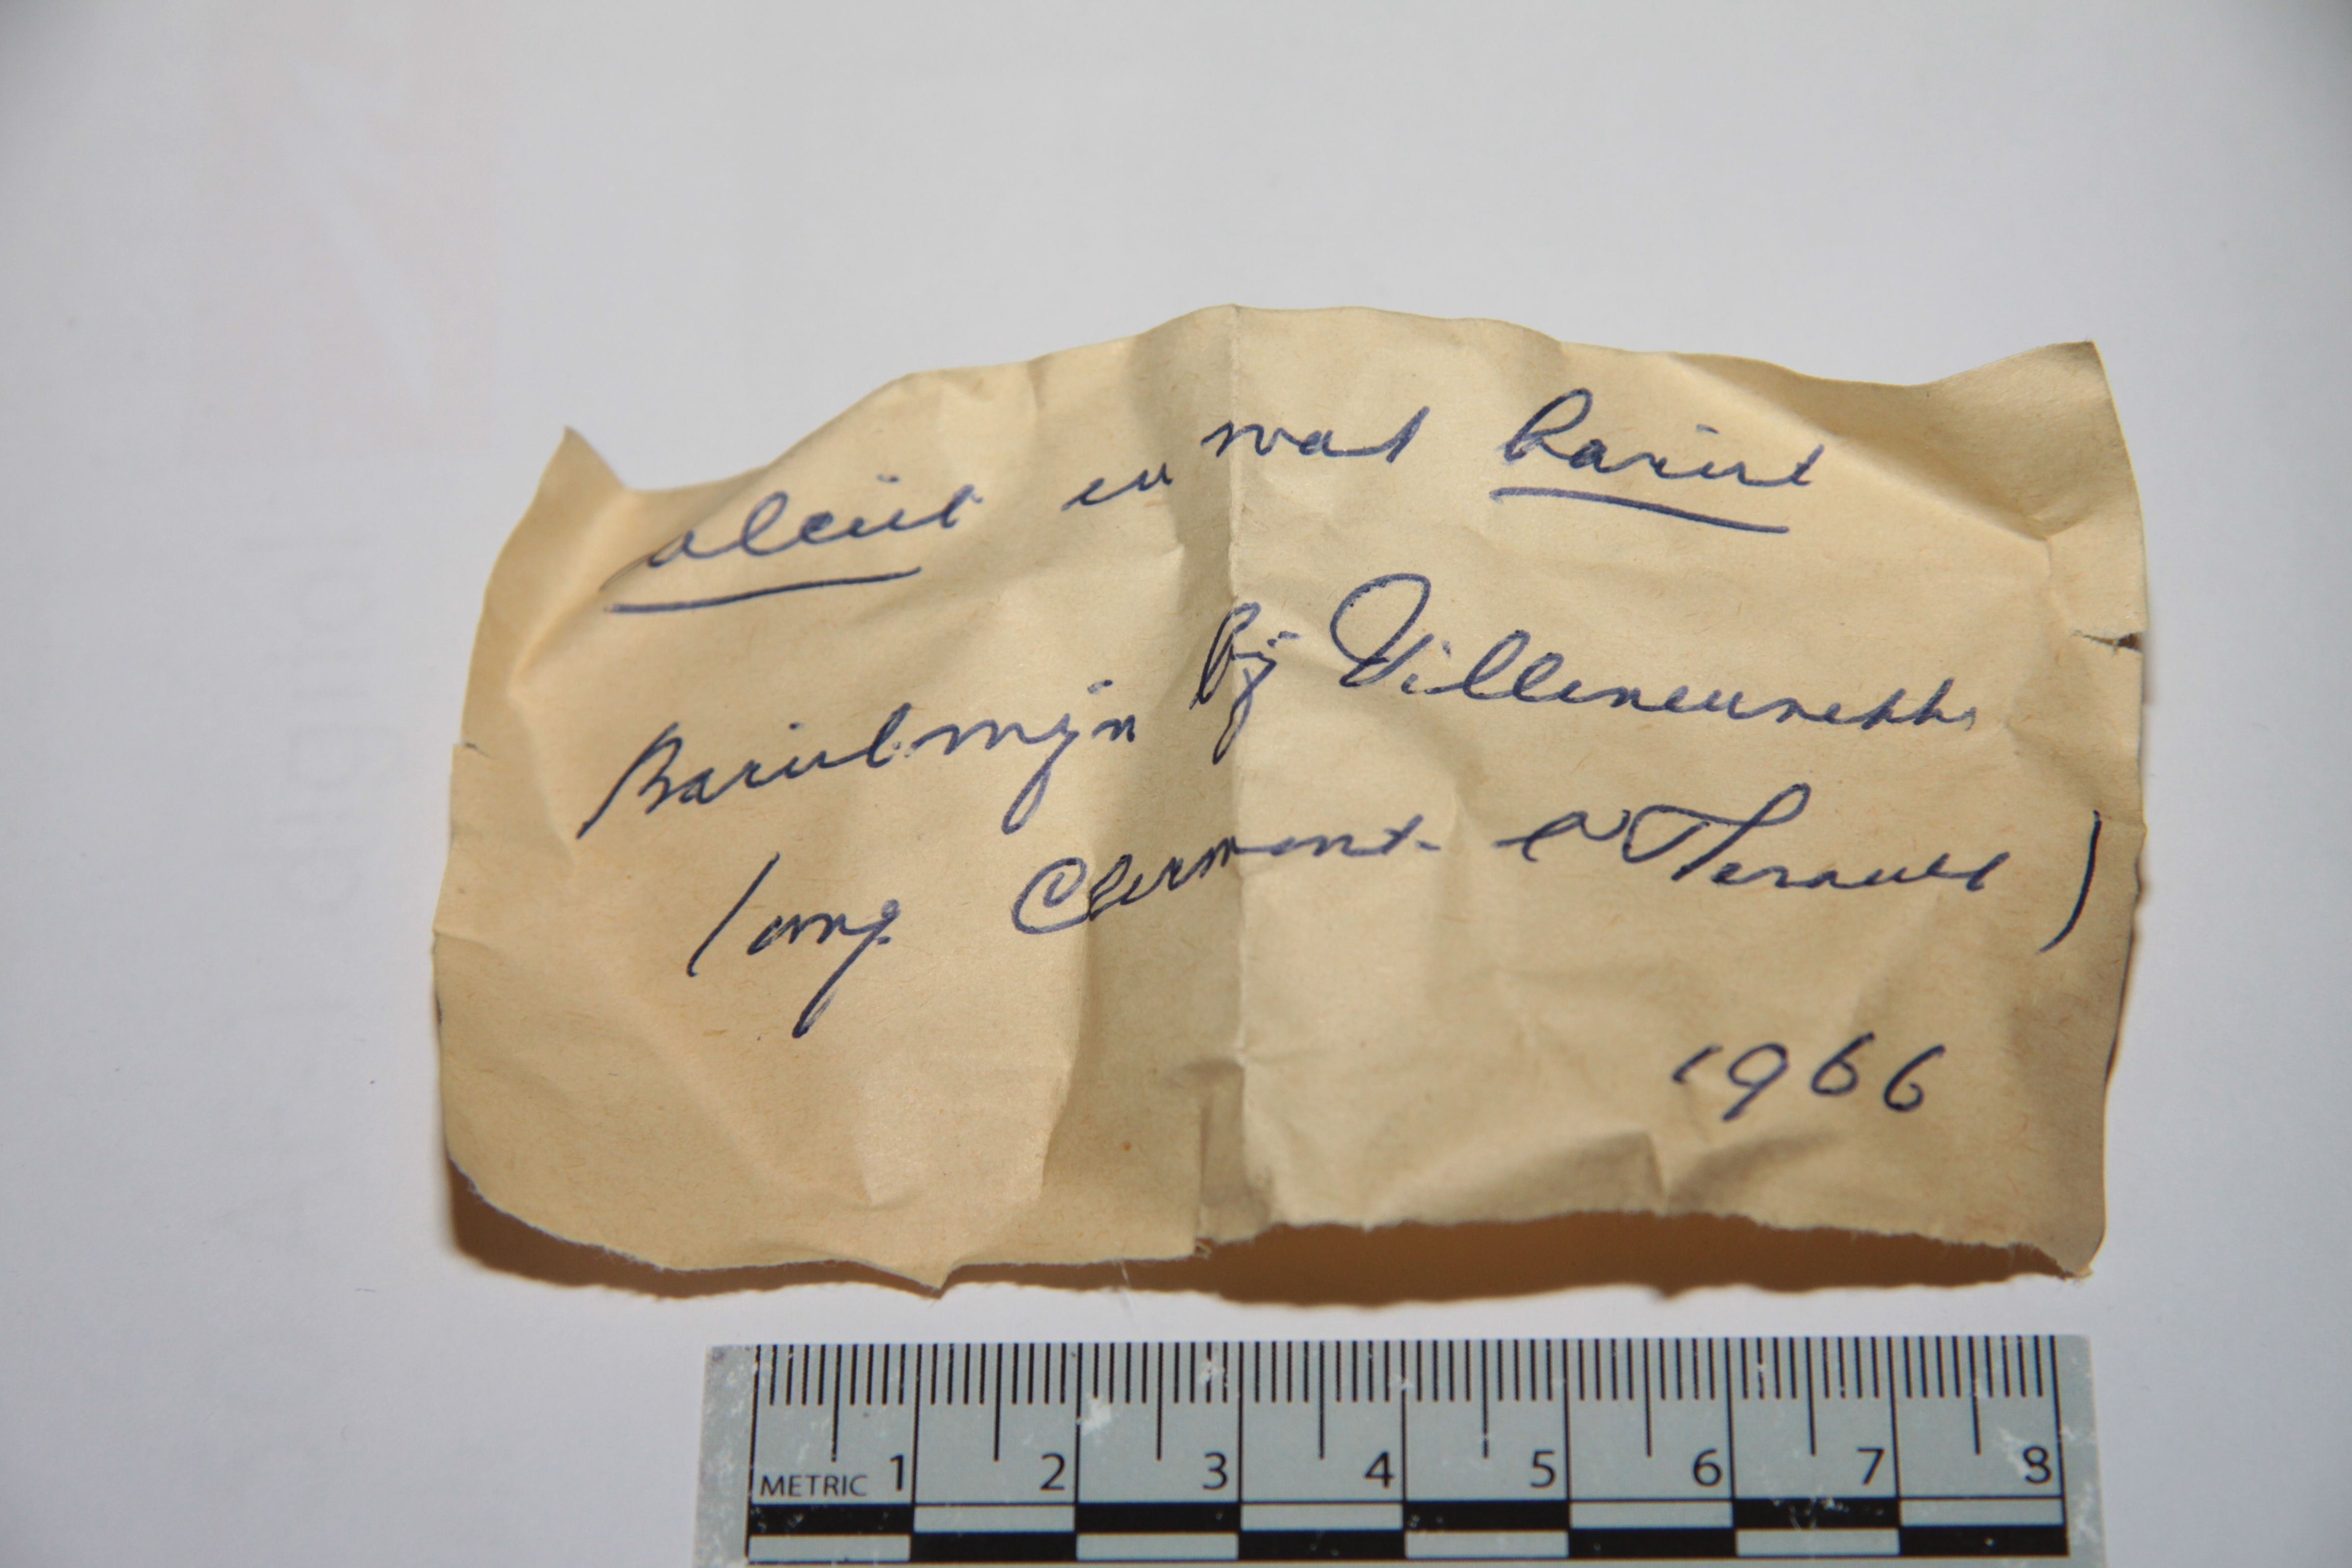 calciet en wat bariet
Barietmijn bij Villeneuvette
(omg. Clermont-l'Herault)
1966
METRIC 1 2 3 4 5 6 7 8